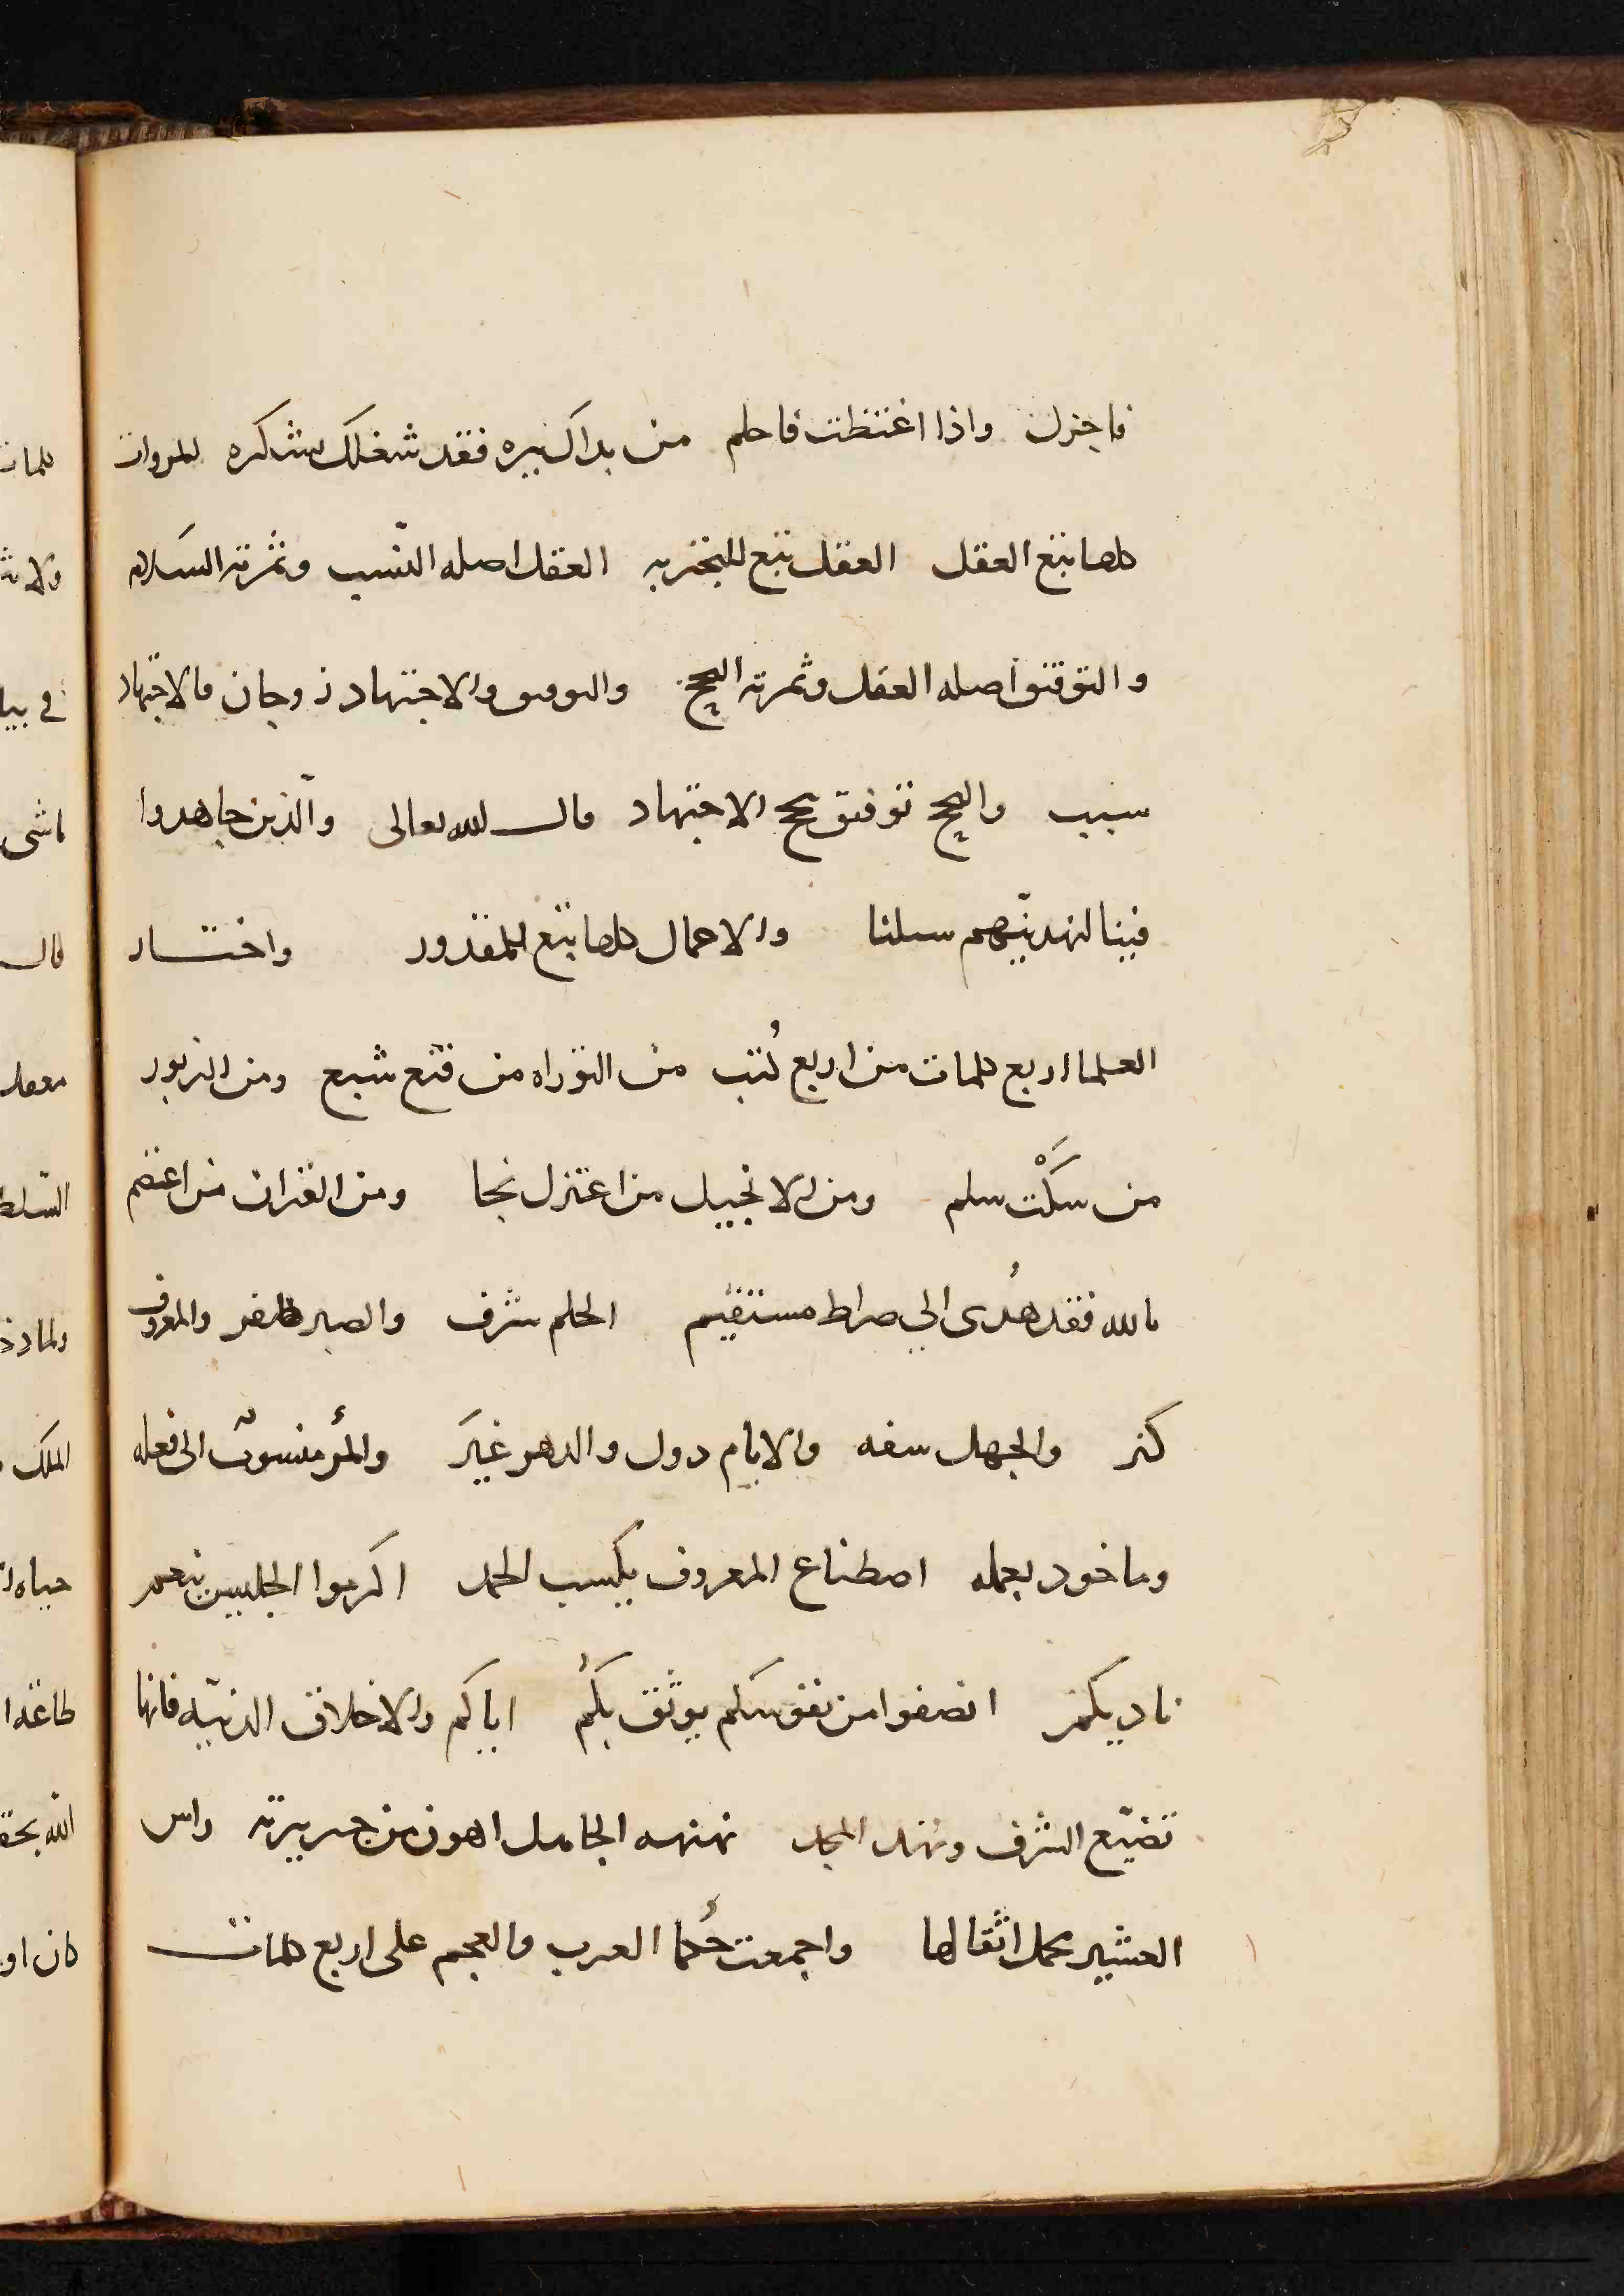 فاجزل واذا اغتظت فاحلم من بداك ببره فقد شغلك بشكره المروات
كلها تبع العقل العقل تبع للتجربه العقل اصله التثبت وثمرته السلامه
والتوفيق اصله العقل وثمرته النجح والتوفيق والاجتهاد زوجان فالاجتهاد
سبب والنجح توفيق ينجح الاجتهاد قال الله تعالى والّذين جاهدوا
فينا لنهدينّهم سبلنا والاعمال كلها تبع للمقدور واختار
العلما اربع كلمات من اربع كُتب من التوراه من قنع شبع ومن الزبور
من سَكْت سلم ومن الانجيل من اعتزل نجا ومن القران من اعتصم
بالله فقد هُدى الي صراط مستقيم الحلم شرف والصبر ظفر والمعروف
كنز والجهل سفه والايام دول والدهر غيَر والمرؤ منسوب الى فعله
وماخود بعمله اصطناع المعروف يكسب الحمد اكرموا الجليس يعمر
ناديكم انصفوا من نفوسكم يوثق بكُم اياكم والاخلاق الدنيّه فانها
تضيّع الشرف وتهدم المجد نهنهه الجاهل اهون من جريرته راس
العشيره يحمل اثقالها واجمعت حُكما العرب والعجم على اربع كلمات